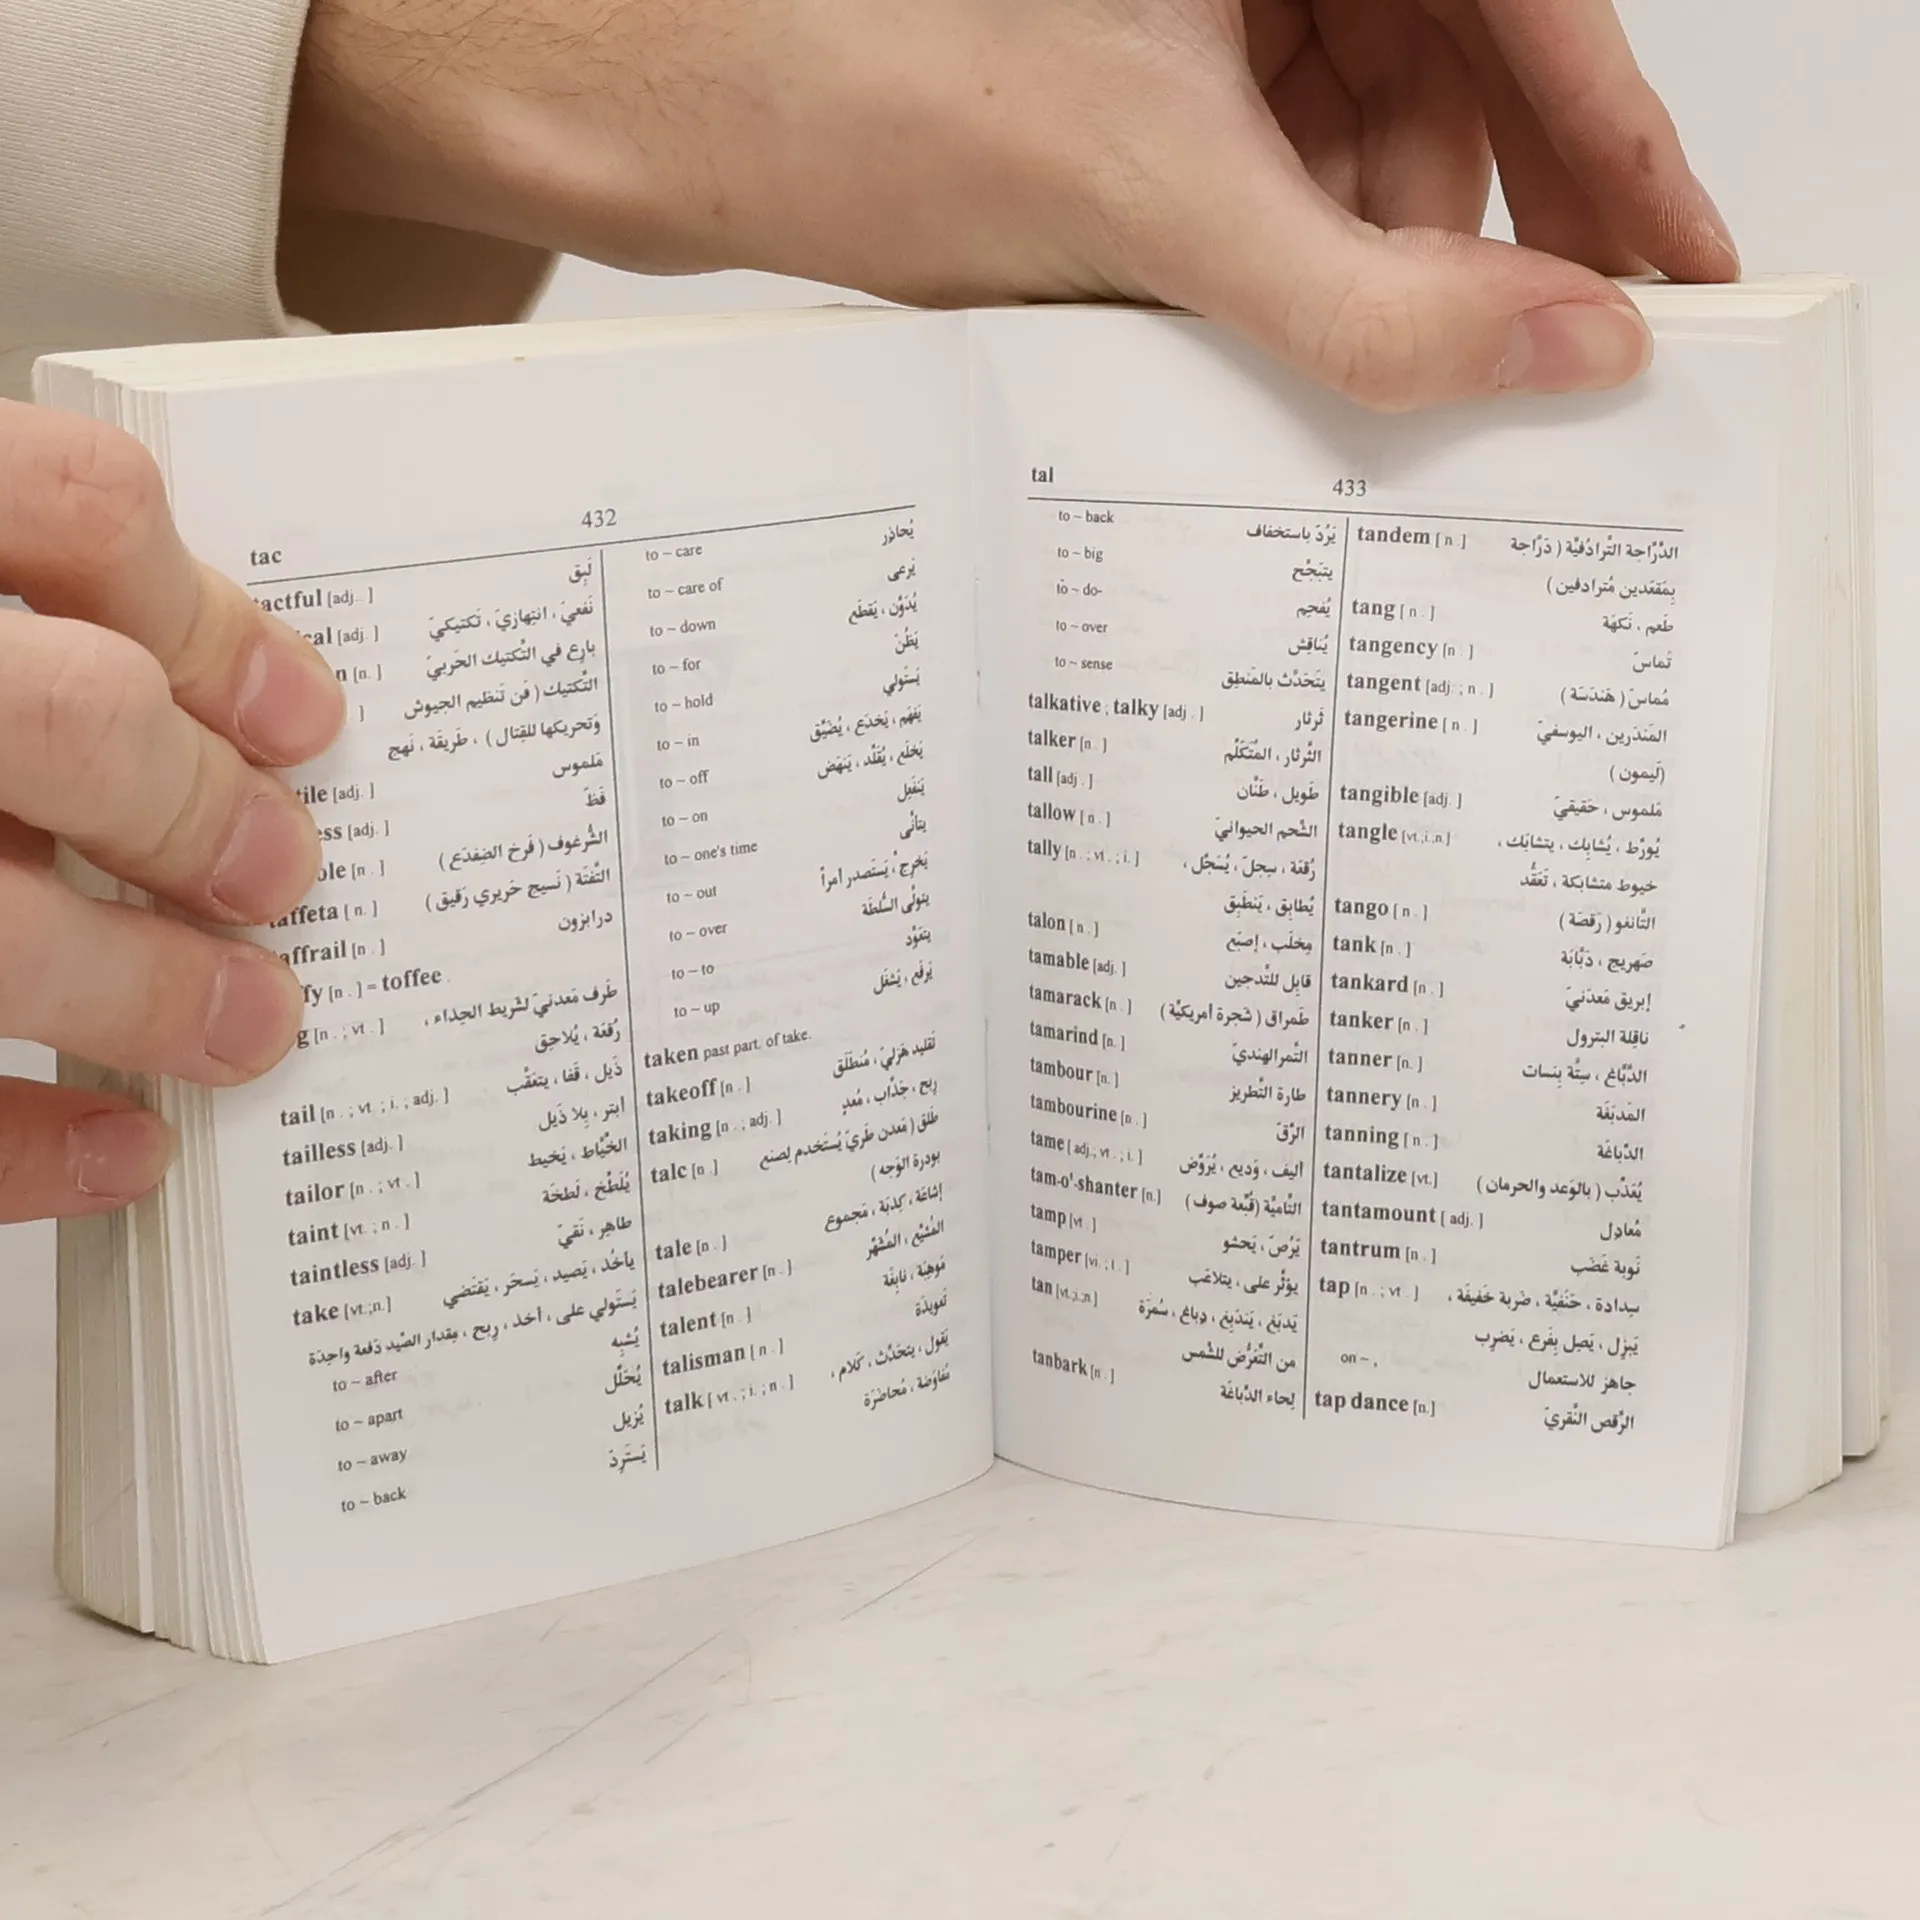 tac
432
tactful [adj. ] لَبِق
[adj. ] نَفعيّ ، انتِهازيّ ، تَكتيكيّ
[n. ] بارِع في التَّكتيك الحَربيّ
] التَّكتيك ( فَن تَنظيم الجيوش
وَتحريكها للقِتال ) ، طَريقَة ، نَهج
[adj. ] مَلموس
[adj. ] فَظّ
[n . ] الشُّرغوف ( فَرخ الضِفدَع )
taffeta [ n. ] التَّفتَة ( نَسيج حَريري رَقيق )
taffrail [n . ] درابزون
[n . ] = toffee .
[n . ; vt . ] طَرف مَعدنيّ لشريط الحِذاء ،
رُقعَة ، يُلاحِق
tail [n . ; vt . ; i. ; adj. ] ذَيل ، قَفا ، يتعَقَّب
tailless [adj. ] أبتر ، بِلا ذَيل
tailor [n . ; vt . ] الخَيَّاط ، يَخيط
taint [vt. ; n . ] يُلَطِّخ ، لَطخَة
taintless [adj. ] طاهِر ، نَقيّ
take [vt.;n.] يأخُذ ، يَصيد ، يَسحَر ، يَقتَضي
يَستَولي على ، أخذ ، رِبح ، مِقدار الصَّيد دَفعة واحِدَة
to ~ after يُشبِه
to ~ apart يُحَلِّل
to ~ away يُزيل
to ~ back يَستَرِدّ
to ~ care يُحاذِر
to ~ care of يَرعى
to ~ down يُدَوِّن ، يَقطَع
to ~ for يَظُنّ
to ~ hold يَستَولي
to ~ in يَفهَم ، يَخدَع ، يُضَيِّق
to ~ off يَخلَع ، يُقَلِّد ، يَنهَض
to ~ on يَنفَعِل
to ~ one's time يتأنَّى
to ~ out يَخرِج ، يَستَصدر أمراً
to ~ over يتولَّى السُّلطَة
to ~ to يتعَوَّد
to ~ up يَرفَع ، يَشغَل
taken past part. of take.
takeoff [n . ] تَقليد هَزليّ ، مُنطَلَق
taking [n . ; adj. ] رِبح ، جَذَّاب ، مُعدٍ
talc [n . ] طَلق ( مَعدن طَريّ يُستَخدم لِصنع
بودرة الوَجه )
tale [n . ] إشاعَة ، كِذبَة ، مَجموع
talebearer [n . ] المُشَيِّع ، المُشَهِّر
talent [n . ] مَوهِبَة ، نابِغَة
talisman [n . ] تَعويذَة
talk [ vt . ; i. ; n . ] يَقول ، يتحَدَّث ، كَلام ،
مُفاوَضَة ، مُحاضَرَة
tal
433
to ~ back يَرُدّ باستخفاف
to ~ big يتبَجَّح
to ~ do- يُفحِم
to ~ over يُناقِش
to ~ sense يتَحَدَّث بالمَنطِق
talkative ; talky [adj . ] ثَرثار
talker [n . ] الثَّرثار ، المُتَكَلِّم
tall [adj . ] طَويل ، طَنَّان
tallow [ n . ] الشَّحم الحيوانيّ
tally [n . ; vt . ; i. ] رُقعَة ، سِجِلّ ، يُسَجِّل ،
يُطابِق ، يَنطَبِق
talon [n . ] مِخلَب ، إصبَع
tamable [adj. ] قابِل للتَّدجين
tamarack [n . ] طَمراق ( شَجرة أمريكيَّة )
tamarind [n. ] التَّمر الهِنديّ
tambour [n . ] طارة التَّطريز
tambourine [n . ] الرَّقّ
tame [ adj.; vt . ; i. ] أليف ، وَديع ، يُرَوِّض
tam-o'-shanter [n.] التَّاميَّة ( قُبَّعة صوف )
tamp [vt . ] يَرُصّ ، يَحشو
tamper [vi. ; t . ] يؤثِّر على ، يتلاعَب
tan [vt.;i.;n.] يَدبَغ ، يَندَبِغ ، دِباغ ، سُمرَة
من التَّعَرُّض للشَّمس
tanbark [n . ] لِحاء الدِّباغَة
tandem [ n . ] الدَّرَّاجة التَّرادُفيَّة ( دَرَّاجة
بِمَقعَدين مُترادفين )
tang [ n . ] طَعم ، نَكهَة
tangency [n . ] تَماسّ
tangent [adj. ; n . ] مُماسّ ( هَندَسَة )
tangerine [ n . ] المَندَرين ، اليوسفيّ
(لَيمون )
tangible [adj. ] مَلموس ، حَقيقيّ
tangle [vt.;i.;n.] يُورِّط ، يُشابِك ، يتشابَك ،
خيوط متشابكة ، تَعَقُّد
tango [ n . ] التَّانغو ( رَقصَة )
tank [n . ] صَهريج ، دَبَّابَة
tankard [n . ] إبريق مَعدَنيّ
tanker [n . ] ناقِلة البترول
tanner [n. ] الدَّبَّاغ ، سِتَّة بِنسات
tannery [n . ] المَدبَغَة
tanning [ n . ] الدِّباغَة
tantalize [vt.] يُعَذِّب ( بالوَعد والحرمان )
tantamount [ adj. ] مُعادِل
tantrum [n . ] نَوبة غَضَب
tap [n . ; vt . ] سِدادة ، حَنَفيَّة ، ضَربة خَفيفَة ،
يَبزِل ، يَصِل بِفَرع ، يَضرِب
on ~ , جاهِز للاستعمال
tap dance [n.] الرَّقص النَّقريّ